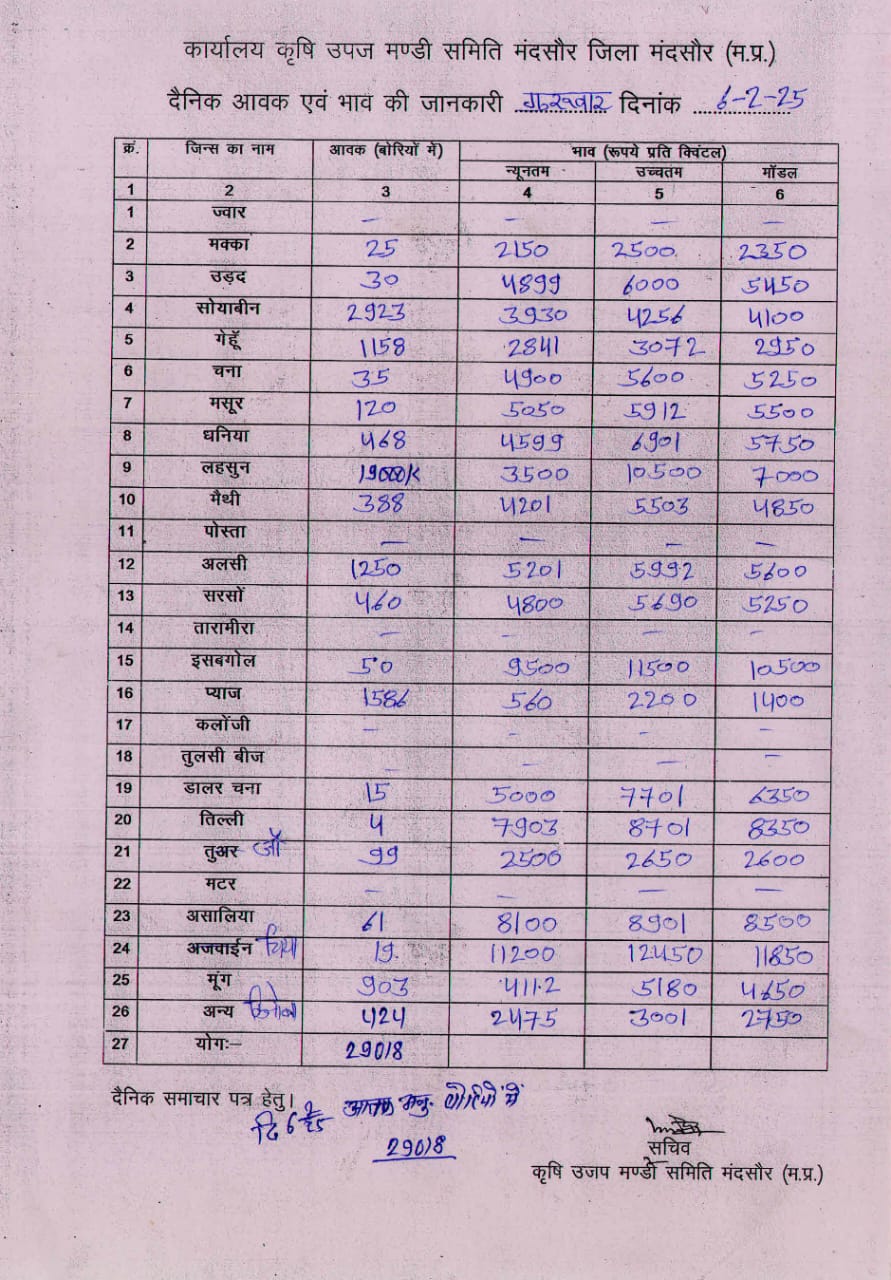 कार्यालय कृषि उपज मण्डी समिति मंदसौर जिला मंदसौर (म.प्र.)
दैनिक आवक एवं भाव की जानकारी गुरूवार दिनांक 6-2-25
क्रं. जिन्स का नाम आवक (बोरियों में) भाव (रूपये प्रति क्विंटल)
न्यूनतम उच्चतम मॉडल
1 2 3 4 5 6
1 ज्वार — — — —
2 मक्का 25 2150 2500 2350
3 उड़द 30 4899 6000 5450
4 सोयाबीन 2923 3930 4256 4100
5 गेहूॅ 1158 2841 3072 2950
6 चना 35 4900 5600 5250
7 मसूर 120 5050 5912 5500
8 धनिया 468 4599 6901 5750
9 लहसुन 3500 10500 7000
10 मैथी 388 4201 5503 4850
11 पोस्ता — — — —
12 अलसी 1250 5201 5992 5600
13 सरसों 460 4800 5690 5250
14 तारामीरा — — — —
15 इसबगोल 50 9500 11500 10500
16 प्याज 1586 560 2200 1400
17 कलोंजी — — — —
18 तुलसी बीज — — — —
19 डालर चना 15 5000 7701 6350
20 तिल्ली 4 7903 8701 8350
21 तुअर जौ 99 2500 2650 2600
22 मटर — — — —
23 असालिया 61 8100 8901 8500
24 अजवाईन चिया 19 11200 12450 11850
25 मूंग 903 4112 5180 4650
26 अन्य 424 2475 3001 2750
27 योगः— 29018
दैनिक समाचार पत्र हेतु।
दि 6 2/25 आवक बोरियों में
29018
सचिव
कृषि उजप मण्डी समिति मंदसौर (म.प्र.)